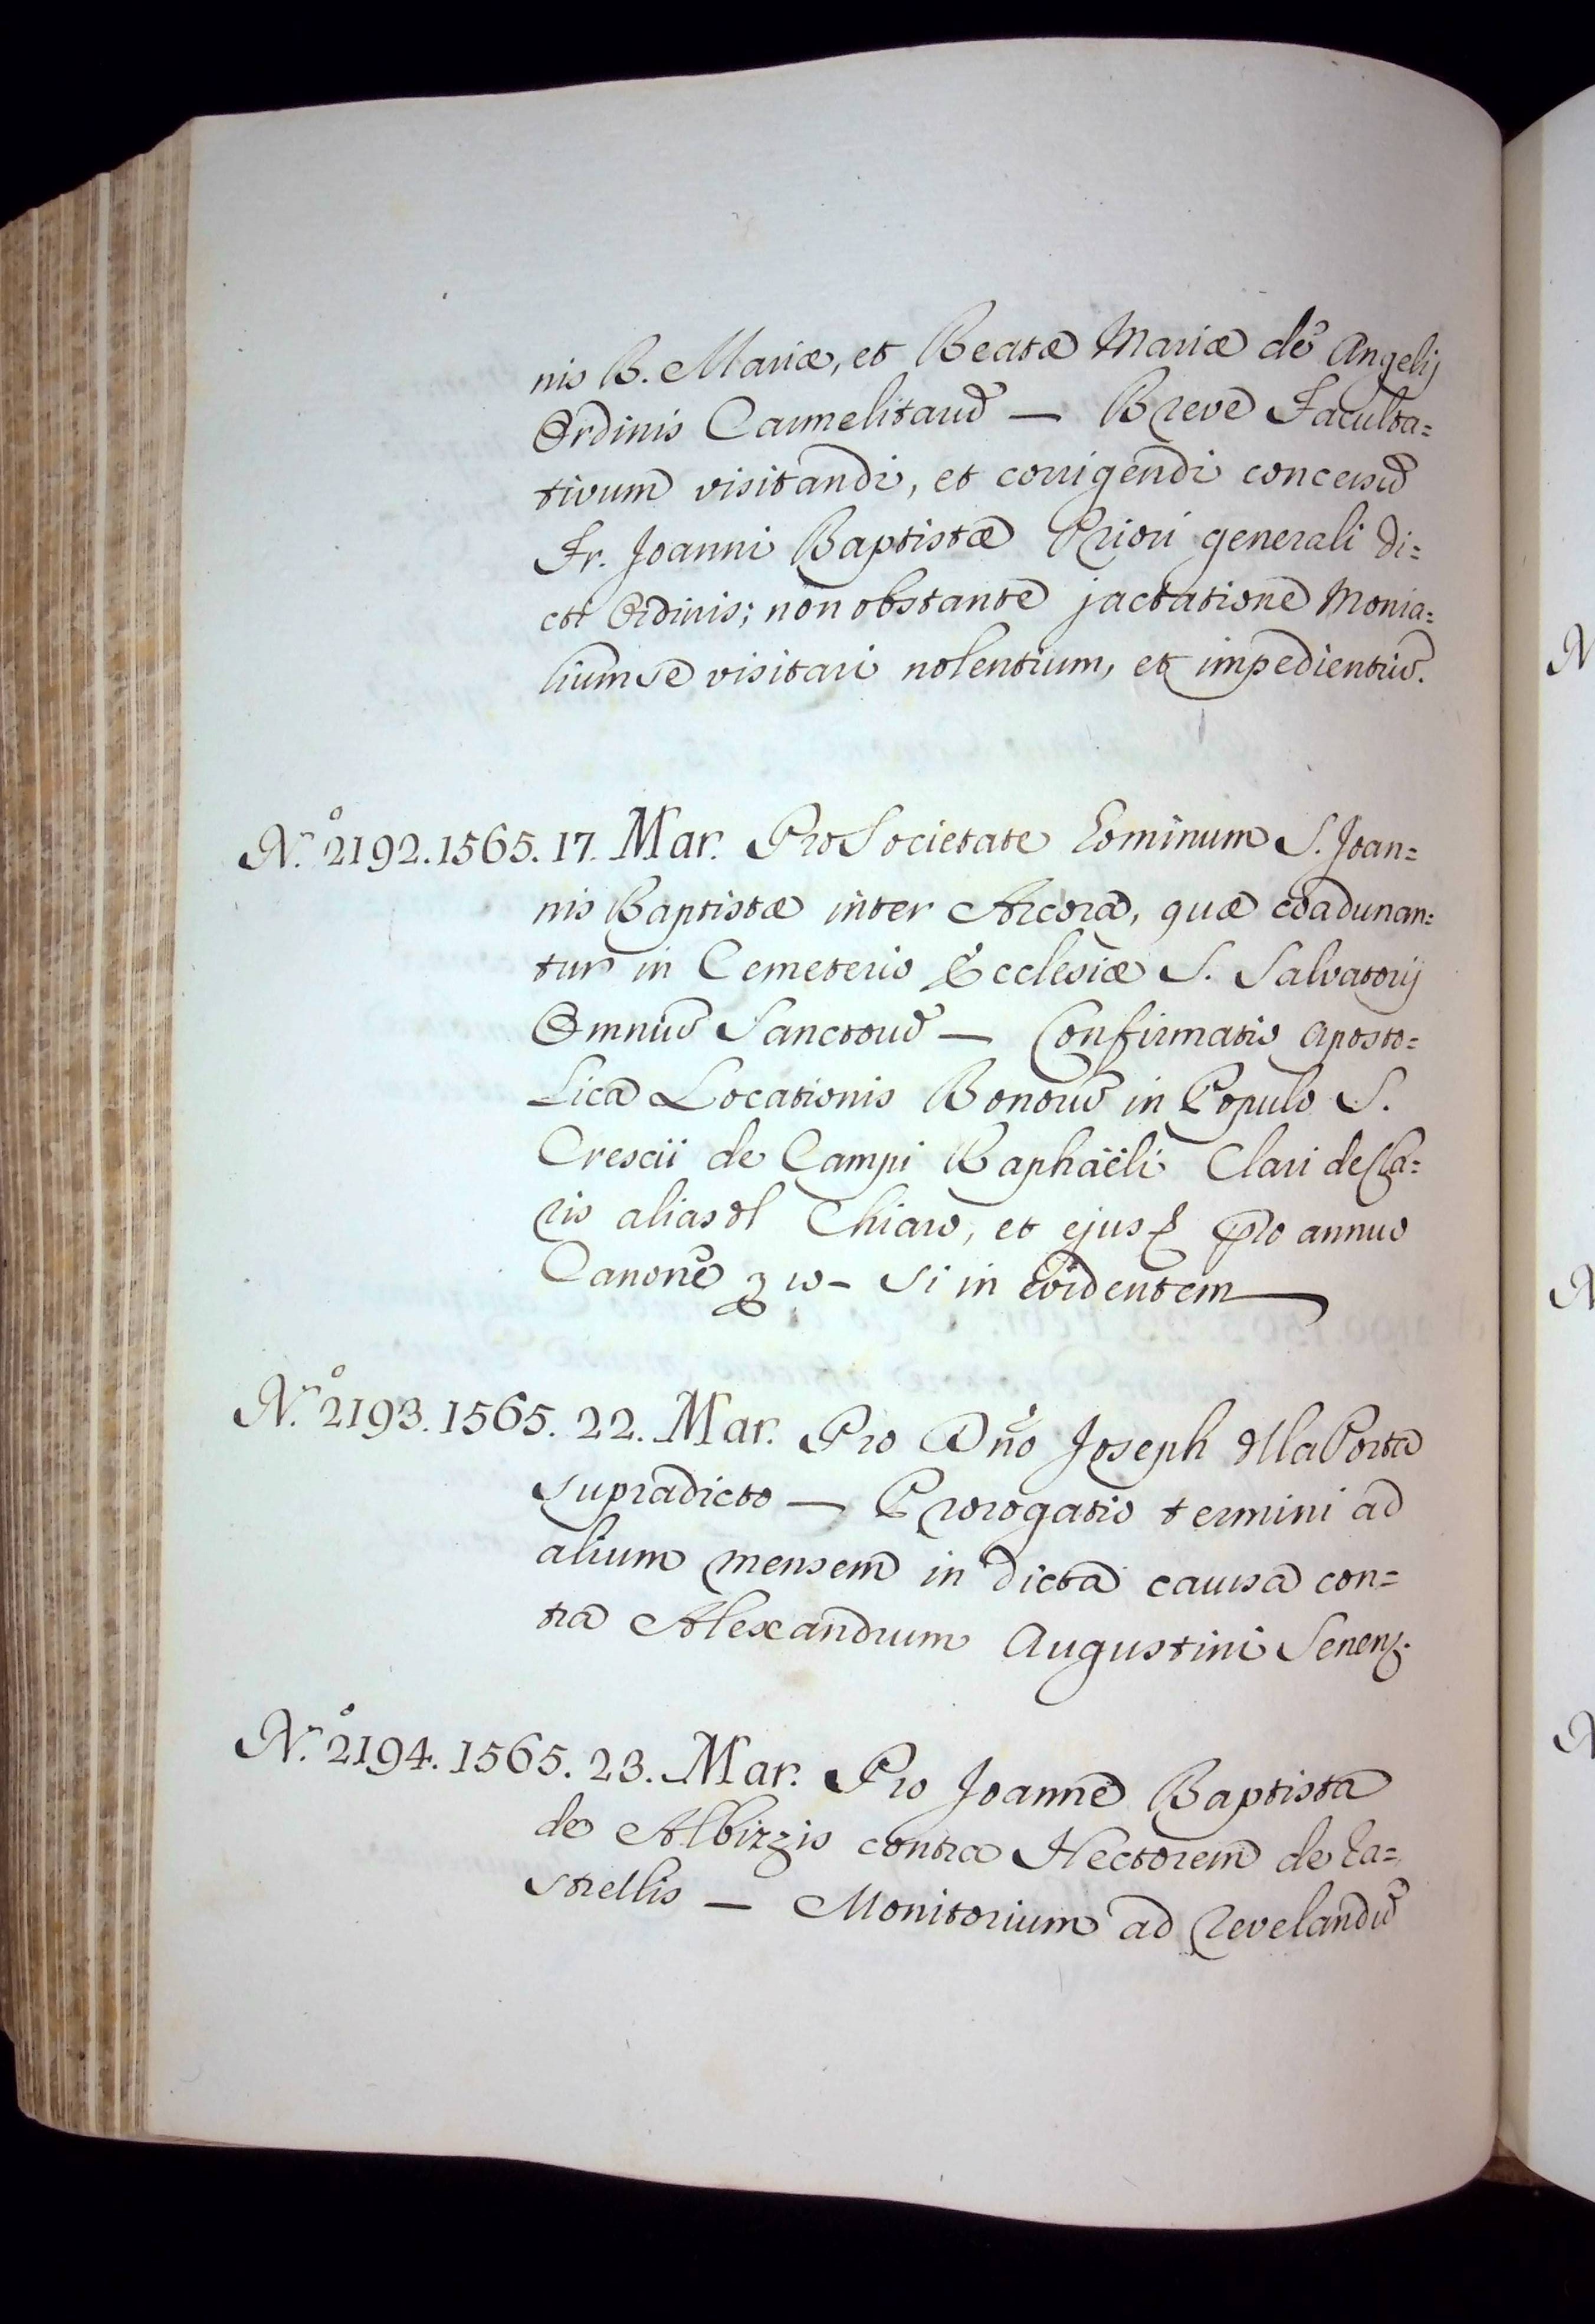 nis B. Mariæ, et Beatæ Mariæ de Angelij
Ordinis Carmelitarũ — Breve Faculta=
tivum visitandi, et corrigendi concessũ
Fr. Joanni Baptistæ Priori generali di=
cti Ordinis; non obstante jactatione Monia=
lium se visitari nolentium, et impedientiũ.
N.º 2192. 1565. 17. Mar. Pro Societate hominum S. Joan=
nis Baptistæ inter Arcora, quæ coadunan=
tur in Cemeterio Ecclesiæ S. Salvatorij
Omniũ Sanctorũ — Confirmatio Aposto=
lica Locationis Bonorũ in Populo S.
Crescii de Campi Raphaëli Clari de Cla=
ris alias dl Chiaro, et ejus pro annuo
Canone — Si in evidentem
N.º 2193. 1565. 22. Mar. Pro Dño Joseph dlla Porta
supradicto — Prorogatio termini ad
alium mensem in dicta causa con=
tra Alexandrum Augustini Senenz.
N.º 2194. 1565. 23. Mar. Pro Joanne Baptista
de Albizzis contra Hectorem de Ca=
strellis — Monitorium ad revelandũ